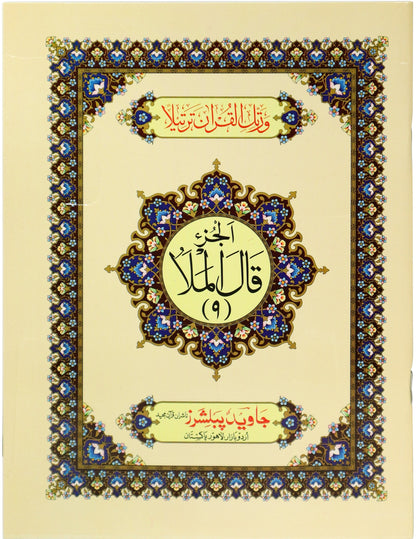 ورتل القرآن ترتيلا
الجزء
قال الملأ
(۹)
جاوید پبلشرز ناشران قرآن مجید
اردو بازار لاہور پاکستان